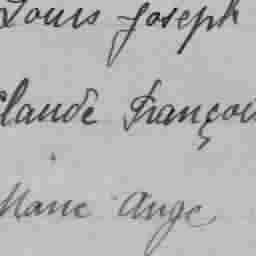 Louis Joseph
Claude François
Marie Ange